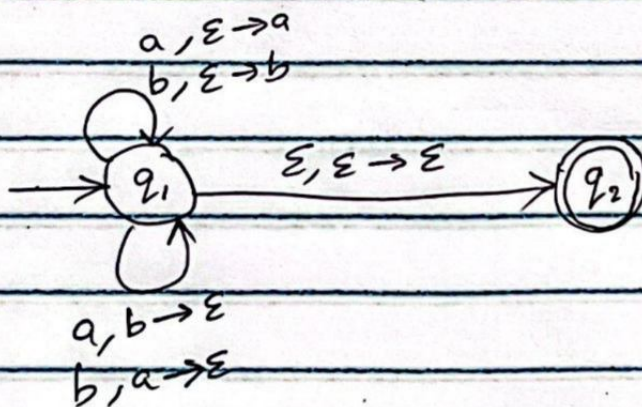 a, ε → a
b, ε → b
q₁
ε, ε → ε
q₂
a, b → ε
b, a → ε